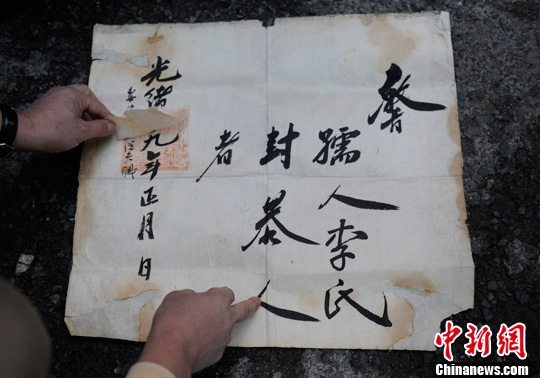 孺人李氏
封恭人
者
光緒九年正月 日
中新网
Chinanews.com